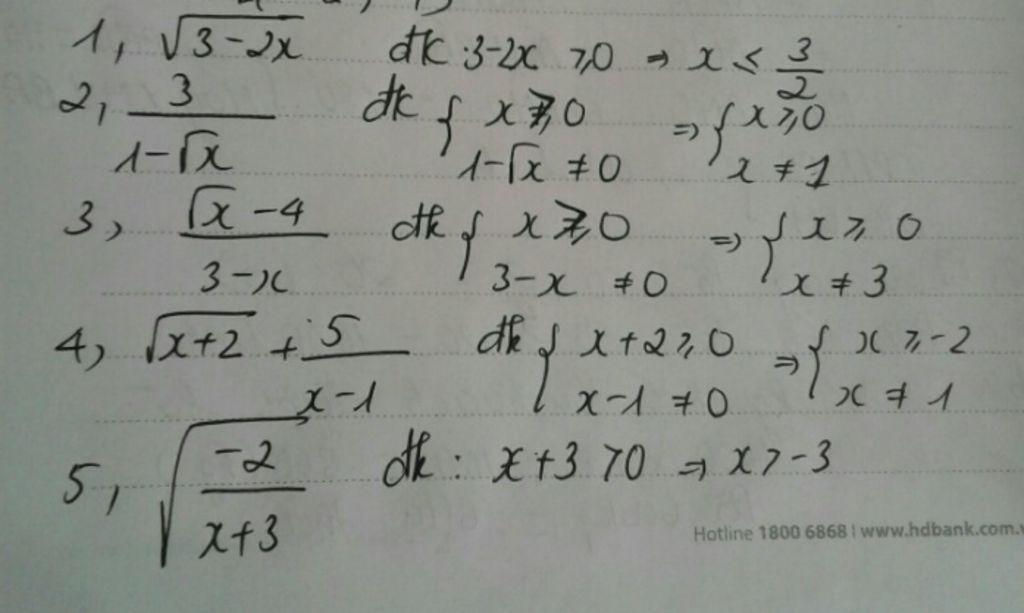 1, √(3-2x) đk: 3-2x ≥0 ⇒ x ≤ 3/2
2, 3/(1-√x) đk { x ≥ 0 ; 1-√x ≠ 0 ⇒ { x ≥ 0 ; x ≠ 1
3, (√x - 4)/(3-x) đk { x ≥ 0 ; 3-x ≠ 0 ⇒ { x ≥ 0 ; x ≠ 3
4, √(x+2) + 5/(x-1) đk { x+2 ≥ 0 ; x-1 ≠ 0 ⇒ { x ≥ -2 ; x ≠ 1
5, √(-2/(x+3)) đk: x+3 > 0 ⇒ x > -3
Hotline 1800 6868 | www.hdbank.com.